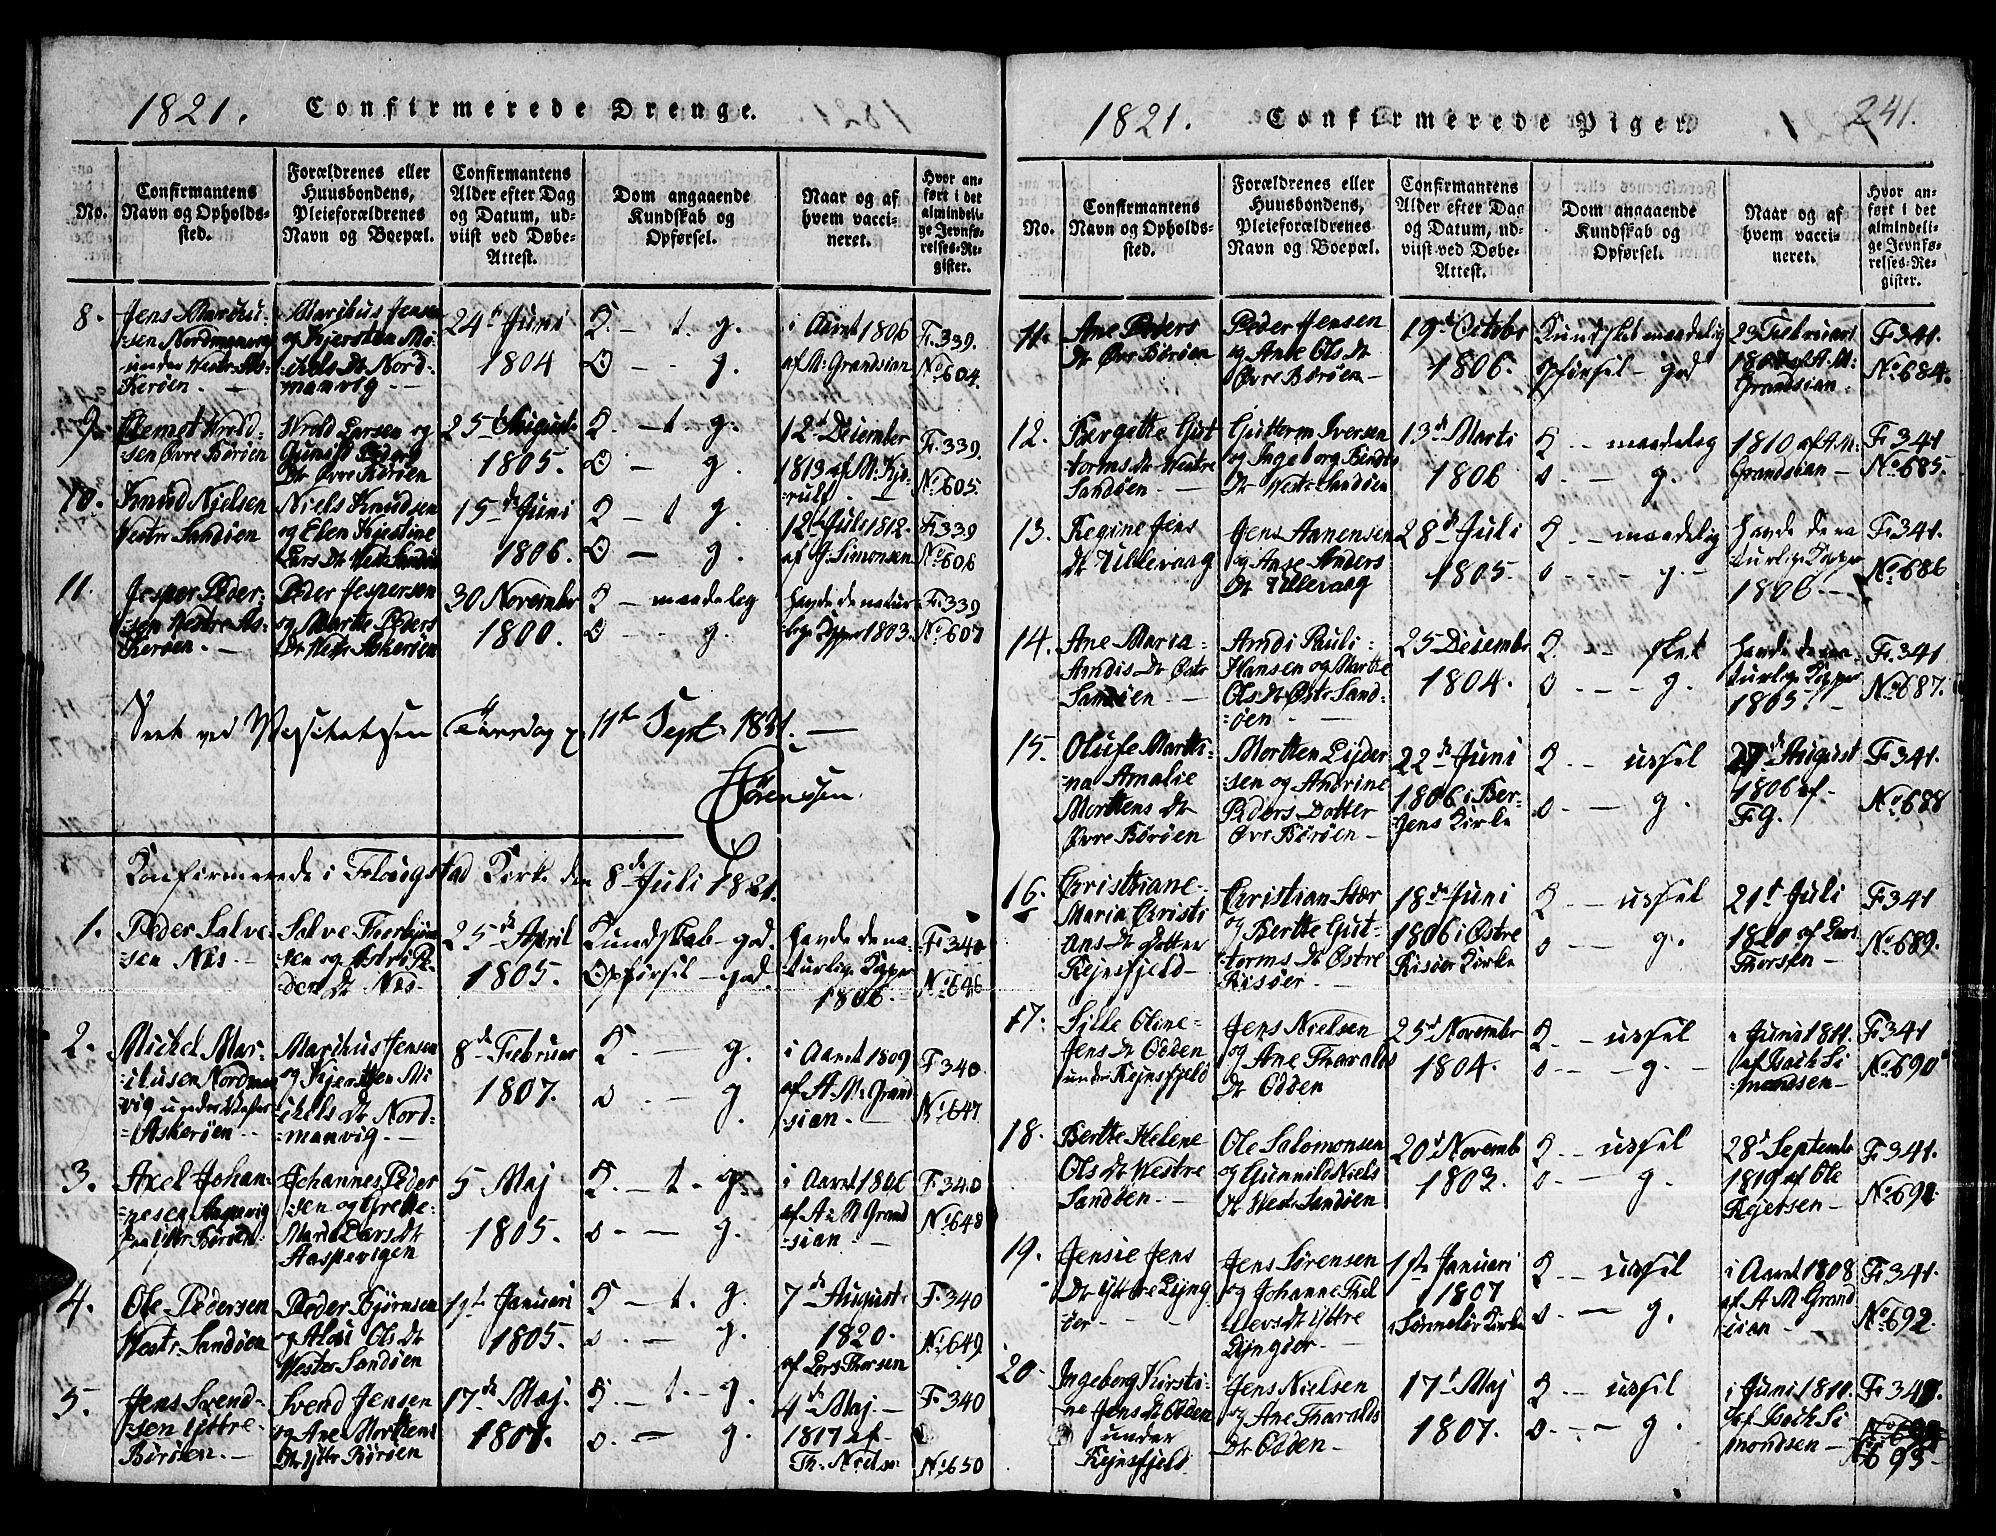 1821. Confirmerede Drenge.
No.
Confirmantens
Navn og Opholds-
sted.
Forældrenes eller
Huusbondens,
Pleieforældrenes
Navn og Boepæl.
Confirmantens
Alder efter Dag
og Datum, ud-
viist ved Døbe-
Attest.
Dom angaaende
Kundskab og
Opførsel.
Naar og af
hvem vacci-
neret.
Hvor an-
ført i det
almindeli-
ge Jevnfø-
relses-Re-
gister.
8.
Jens
-sen Nordmanvig
under Westr As-
kerøen.
Marihus Jensen
og Kjersten Mi-
ckels Dr Nord-
manvig
24de Juni
1804
K. - t. g.
O - - g.
i Aaret 1806
af M: Grandsian
F: 339.
No 604.
9.
Wrold-
sen Øvre Børøen
Wrold Larsen og
Gunild Peders
Dr Øvre Børøen
25 August
1805.
K. - t. g.
O - g.
12te December
1813 af
F: 339.
No 605.
10.
Knud Nielsen
Westr Sandøen
Niels Knudsen
og Elen Kjestine
Lars Dr Westr Sandøen
15de Juni
1806.
K - t g.
O - g.
12te Juli 1812
af J: Simonsen
F: 339
No 606
11.
Jesper Peder-
sen Westre As-
kerøen.
Peder Jespersen
og Marthe Peders
Dr Westr Askerøen
30 November
1800.
K - maadeleg
O - - g.
havde de natur-
lige Kopper 1803.
F: 339
No 607
Seet ved Visitatsen Tiirsdag d. 11te Sept. 1821.
Sørenssen
Konfirmerede i Flougstad Kirke den 8de Juli 1821.
1.
Peder Salve-
sen Næs
Salve Torbjørn-
sen og Astri Pe-
ders Dr Næs
25de April
1805.
Kundskab - god.
Opførsel - god.
havde de na-
turlige Kopper
1806.
F: 340
No 646
2.
Mickel Mar-
ihusen Nordman-
vig under Wester
Askerøen.
Marihus Jensen
og Kjersten Mi-
ckels Dr Nord-
manvig.
8de Februar
1807.
K. - g.
o. - g.
i Aaret 1809
af A. M: Grand
sian.
F: 340
No 647
3.
Axel Johan-
nesen Aaspevig
paa Ittr Børøen
Johannes Peder
sen og Grethe
Maria Lars Dr
Aaspevigen
5 Maj
1805.
K. - t. g.
o. - g.
i Aaret 1806
af A M Grand
sian
F: 340
No 648
4.
Ole Pedersen
Westr Sandøen
Peder Bjørnsen
og Alou Ols Dr
Wester Sandøen
19de Januari
1805.
K - t. g.
o. - g.
7de August
1820.
af Lars Thorsen
F: 340
No 649
5.
Jens Svend-
sen Ittre-
Børøen.
Svend Jensen
og Ane Morttens
Dr Ittr Børøen
17de Maj.
1807.
K - t. g.
o. - g.
4de Maj
1817 af
Th. Nielsen
F: 340
No 650
1821. Confirmerede Piger. 241.
No.
Confirmantens
Navn og Opholds-
sted.
Forældrenes eller
Huusbondens,
Pleieforældrenes
Navn og Boepæl.
Confirmantens
Alder efter Dag
og Datum, ud-
viist ved Døbe-
Attest.
Dom angaaende
Kundskab og
Opførsel.
Naar og af
hvem vacci-
neret.
Hvor an-
ført i det
almindeli-
ge Jevnfø-
relses-Re-
gister.
11.
Ane Peders
Dr Øvr Børøen
Peder Jensen
og Ane Ols Dr
Øvre Børøen
19de Octobr
1806.
Kundskab maadelig
Opførsel - god
23 Februari
af A. M:
Grandsian
F: 341.
No 684.
12.
Bergette Gut
torms Dr Westre
Sandøen
Guttorm Iversen
og Ingeborg Bendts
Dr Westr Sandøen
13de Marts
1806
K - - maadeleg
o. - g.
1810 af A. M:
Grandsian
F: 341
No 685.
13.
Regine Jens
Dr Ullevaag
Jens Aanensen
og Anne Anders
Dr Ullevaag
28de Juli
1805.
K - - maadelig
o. - - g.
havde de na
turlige Kopper
1806.
F: 341.
No 686
14.
Ane Maria
Arndis Dr Østr
Sandøen
Arndi Pauli-
Hansen og Marthe
Ols Dr Østr Sand-
øen
25 Decembr
1804.
K. - - slet
o. - - g.
havde de na-
turlige Kopper
1805.
F: 341
No 687.
15.
Olufe Martti-
na Amalie
Morttens Dr
Øvre Børøen
Mortten Lyder
sen og Andrine
Peders Dotter
Øvr Børøen
22de Juni
1806 i Ber-
gens Kirke
K - - ussel
o. - g.
27de August
1806 af
F. G.
F: 341.
No 688
16.
Christiane-
Maria Christi
ans Dr Dotter
Rejnsfjeld
Christian Stær
og Berthe Gut-
torms Dr Østre
Risøer
18de Juni
1806 i Østre
Risøer Kirke
K - - ussel
o. - g.
21de Juli
1820 af Lars
Thorsen
F: 341
No 689.
17.
Sille Oline
Jens Dr Odden
under Rejnsfjeld
Jens Nielsen
og Ane Tharalds
Dr Odden
25de Novembr
1804.
K - - ussel
o. - - g.
i Juni 1811
af Isach Si
mondsen
F: 341
No 690
18.
Berthe Helene
Ols Dr Westre
Sandøen
Ole Salomonsen
og Gunnild Niels
Dr Westr Sandøen
20de Novembr
1803.
K - - ussel
o. - g.
28de Septembr
1819 af Ole
Rejersen
F: 341.
No 691.
19.
Jensie Jens
Dr Yttre Lyng-
øer
Jens Sørensen
og Johanne
Dr Yttre
Lyngøer
1ste Januari
1807
i Sønneløv Kirke
K - - ussel
o. - g.
i Aaret 1808
af A M Grand
sian
F: 341.
No 692.
20.
Ingeborg Kirsti-
ne Jens Dr Odden
under
Rejnsfjeld
Jens Nielsen
og Ane Tharalds
Dr Odden
17de Maj
1807.
K - - ussel
o. - - g.
i Juni 1811.
af Isach Si
mondsen
F: 341.
No 693